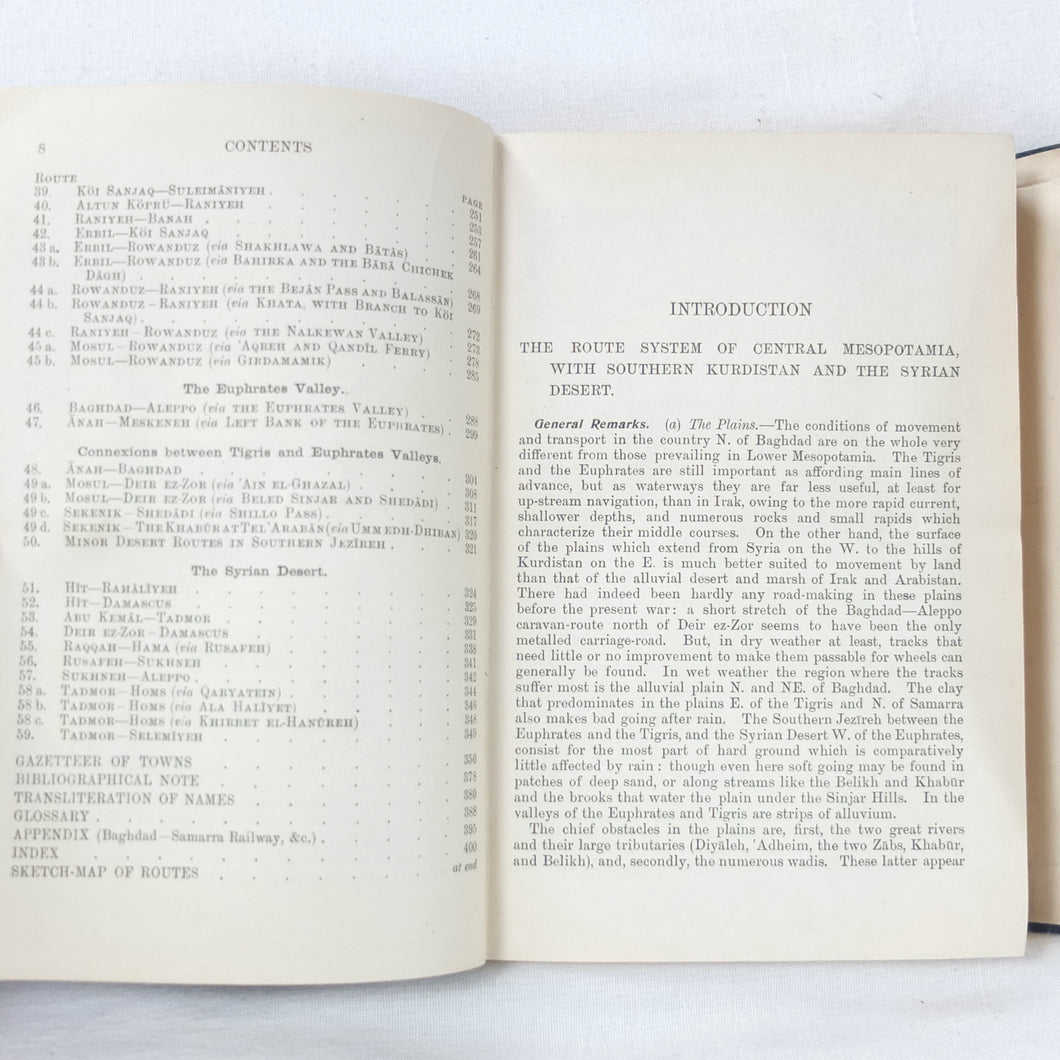 8 CONTENTS
ROUTE PAGE
39. KÖI SANJAQ—SULEIMĀNIYEH . . . . . . 251
40. ALTUN KÖPRÜ—RANIYEH . . . . . . 253
41. RANIYEH—BANAH . . . . . . . 257
42. ERBIL—KÖI SANJAQ . . . . . . 261
43 a. ERBIL—ROWANDUZ (via SHAKHLAWA AND BĀTĀS) . . 264
43 b. ERBIL—ROWANDUZ (via BAHIRKA AND THE BĀBĀ CHICHEK
DĀGH) . . . . . . . . 268
44 a. ROWANDUZ—RANIYEH (via THE BEJĀN PASS AND BALASSĀN) 269
44 b. ROWANDUZ–RANIYEH (via KHATA, WITH BRANCH TO KÖI
SANJAQ) . . . . . . . . 272
44 c. RANIYEH–ROWANDUZ (via THE NALKEWAN VALLEY) . 273
45 a. MOSUL–ROWANDUZ (via ‘AQREH AND QANDĪL FERRY) . 278
45 b. MOSUL—ROWANDUZ (via GIRDAMAMIK) . . . 285
The Euphrates Valley.
46. BAGHDAD—ALEPPO (via THE EUPHRATES VALLEY) . . 288
47. ĀNAH—MESKENEH (via LEFT BANK OF THE EUPHRATES) . 299
Connexions between Tigris and Euphrates Valleys.
48. ĀNAH—BAGHDAD . . . . . . . 304
49 a. MOSUL—DEIR EZ-ZOR (via ‘AIN EL-GHAZAL) . . . 308
49 b. MOSUL—DEIR EZ-ZOR (via BELED SINJAR AND SHEDĀDI) . 311
49 c. SEKENIK—SHEDĀDI (via SHILLO PASS) . . . . 317
49 d. SEKENIK—THE KHABŪR AT TEL ‘ARABĀN (via UMM EDH-DHIBAN) 320
50. MINOR DESERT ROUTES IN SOUTHERN JEZĪREH . . . 321
The Syrian Desert.
51. HĪT—RAHĀLĪYEH . . . . . . . 324
52. HĪT—DAMASCUS . . . . . . . 325
53. ABU KEMĀL—TADMOR . . . . . . 329
54. DEIR EZ-ZOR–DAMASCUS . . . . . . 331
55. RAQQAH—HAMA (via RUSAFEH) . . . . . 338
56. RUSAFEH—SUKHNEH . . . . . . 341
57. SUKHNEH—ALEPPO . . . . . . . 342
58 a. TADMOR—HOMS (via QARYATEIN) . . . . . 344
58 b. TADMOR–HOMS (via ALA HALIYET) . . . . 346
58 c. TADMOR—HOMS (via KHIRBET EL-HANŪREH) . . . 348
59. TADMOR—SELEMĪYEH . . . . . . 349
GAZETTEER OF TOWNS . . . . . . . 350
BIBLIOGRAPHICAL NOTE . . . . . . . 378
TRANSLITERATION OF NAMES . . . . . . 380
GLOSSARY . . . . . . . . . 388
APPENDIX (Baghdad–Samarra Railway, &c.) . . . . 395
INDEX . . . . . . . . . 400
SKETCH-MAP OF ROUTES . . . . . . at end
INTRODUCTION
THE ROUTE SYSTEM OF CENTRAL MESOPOTAMIA,
WITH SOUTHERN KURDISTAN AND THE SYRIAN
DESERT.
General Remarks. (a) The Plains.—The conditions of movement
and transport in the country N. of Baghdad are on the whole very
different from those prevailing in Lower Mesopotamia. The Tigris
and the Euphrates are still important as affording main lines of
advance, but as waterways they are far less useful, at least for
up-stream navigation, than in Irak, owing to the more rapid current,
shallower depths, and numerous rocks and small rapids which
characterize their middle courses. On the other hand, the surface
of the plains which extend from Syria on the W. to the hills of
Kurdistan on the E. is much better suited to movement by land
than that of the alluvial desert and marsh of Irak and Arabistan.
There had indeed been hardly any road-making in these plains
before the present war: a short stretch of the Baghdad—Aleppo
caravan-route north of Deir ez-Zor seems to have been the only
metalled carriage-road. But, in dry weather at least, tracks that
need little or no improvement to make them passable for wheels can
generally be found. In wet weather the region where the tracks
suffer most is the alluvial plain N. and NE. of Baghdad. The clay
that predominates in the plains E. of the Tigris and N. of Samarra
also makes bad going after rain. The Southern Jezīreh between the
Euphrates and the Tigris, and the Syrian Desert W. of the Euphrates,
consist for the most part of hard ground which is comparatively
little affected by rain: though even here soft going may be found in
patches of deep sand, or along streams like the Belikh and Khabūr
and the brooks that water the plain under the Sinjar Hills. In the
valleys of the Euphrates and Tigris are strips of alluvium.
The chief obstacles in the plains are, first, the two great rivers
and their large tributaries (Diyāleh, ‘Adheim, the two Zābs, Khabūr,
and Belikh), and, secondly, the numerous wadis. These latter appear